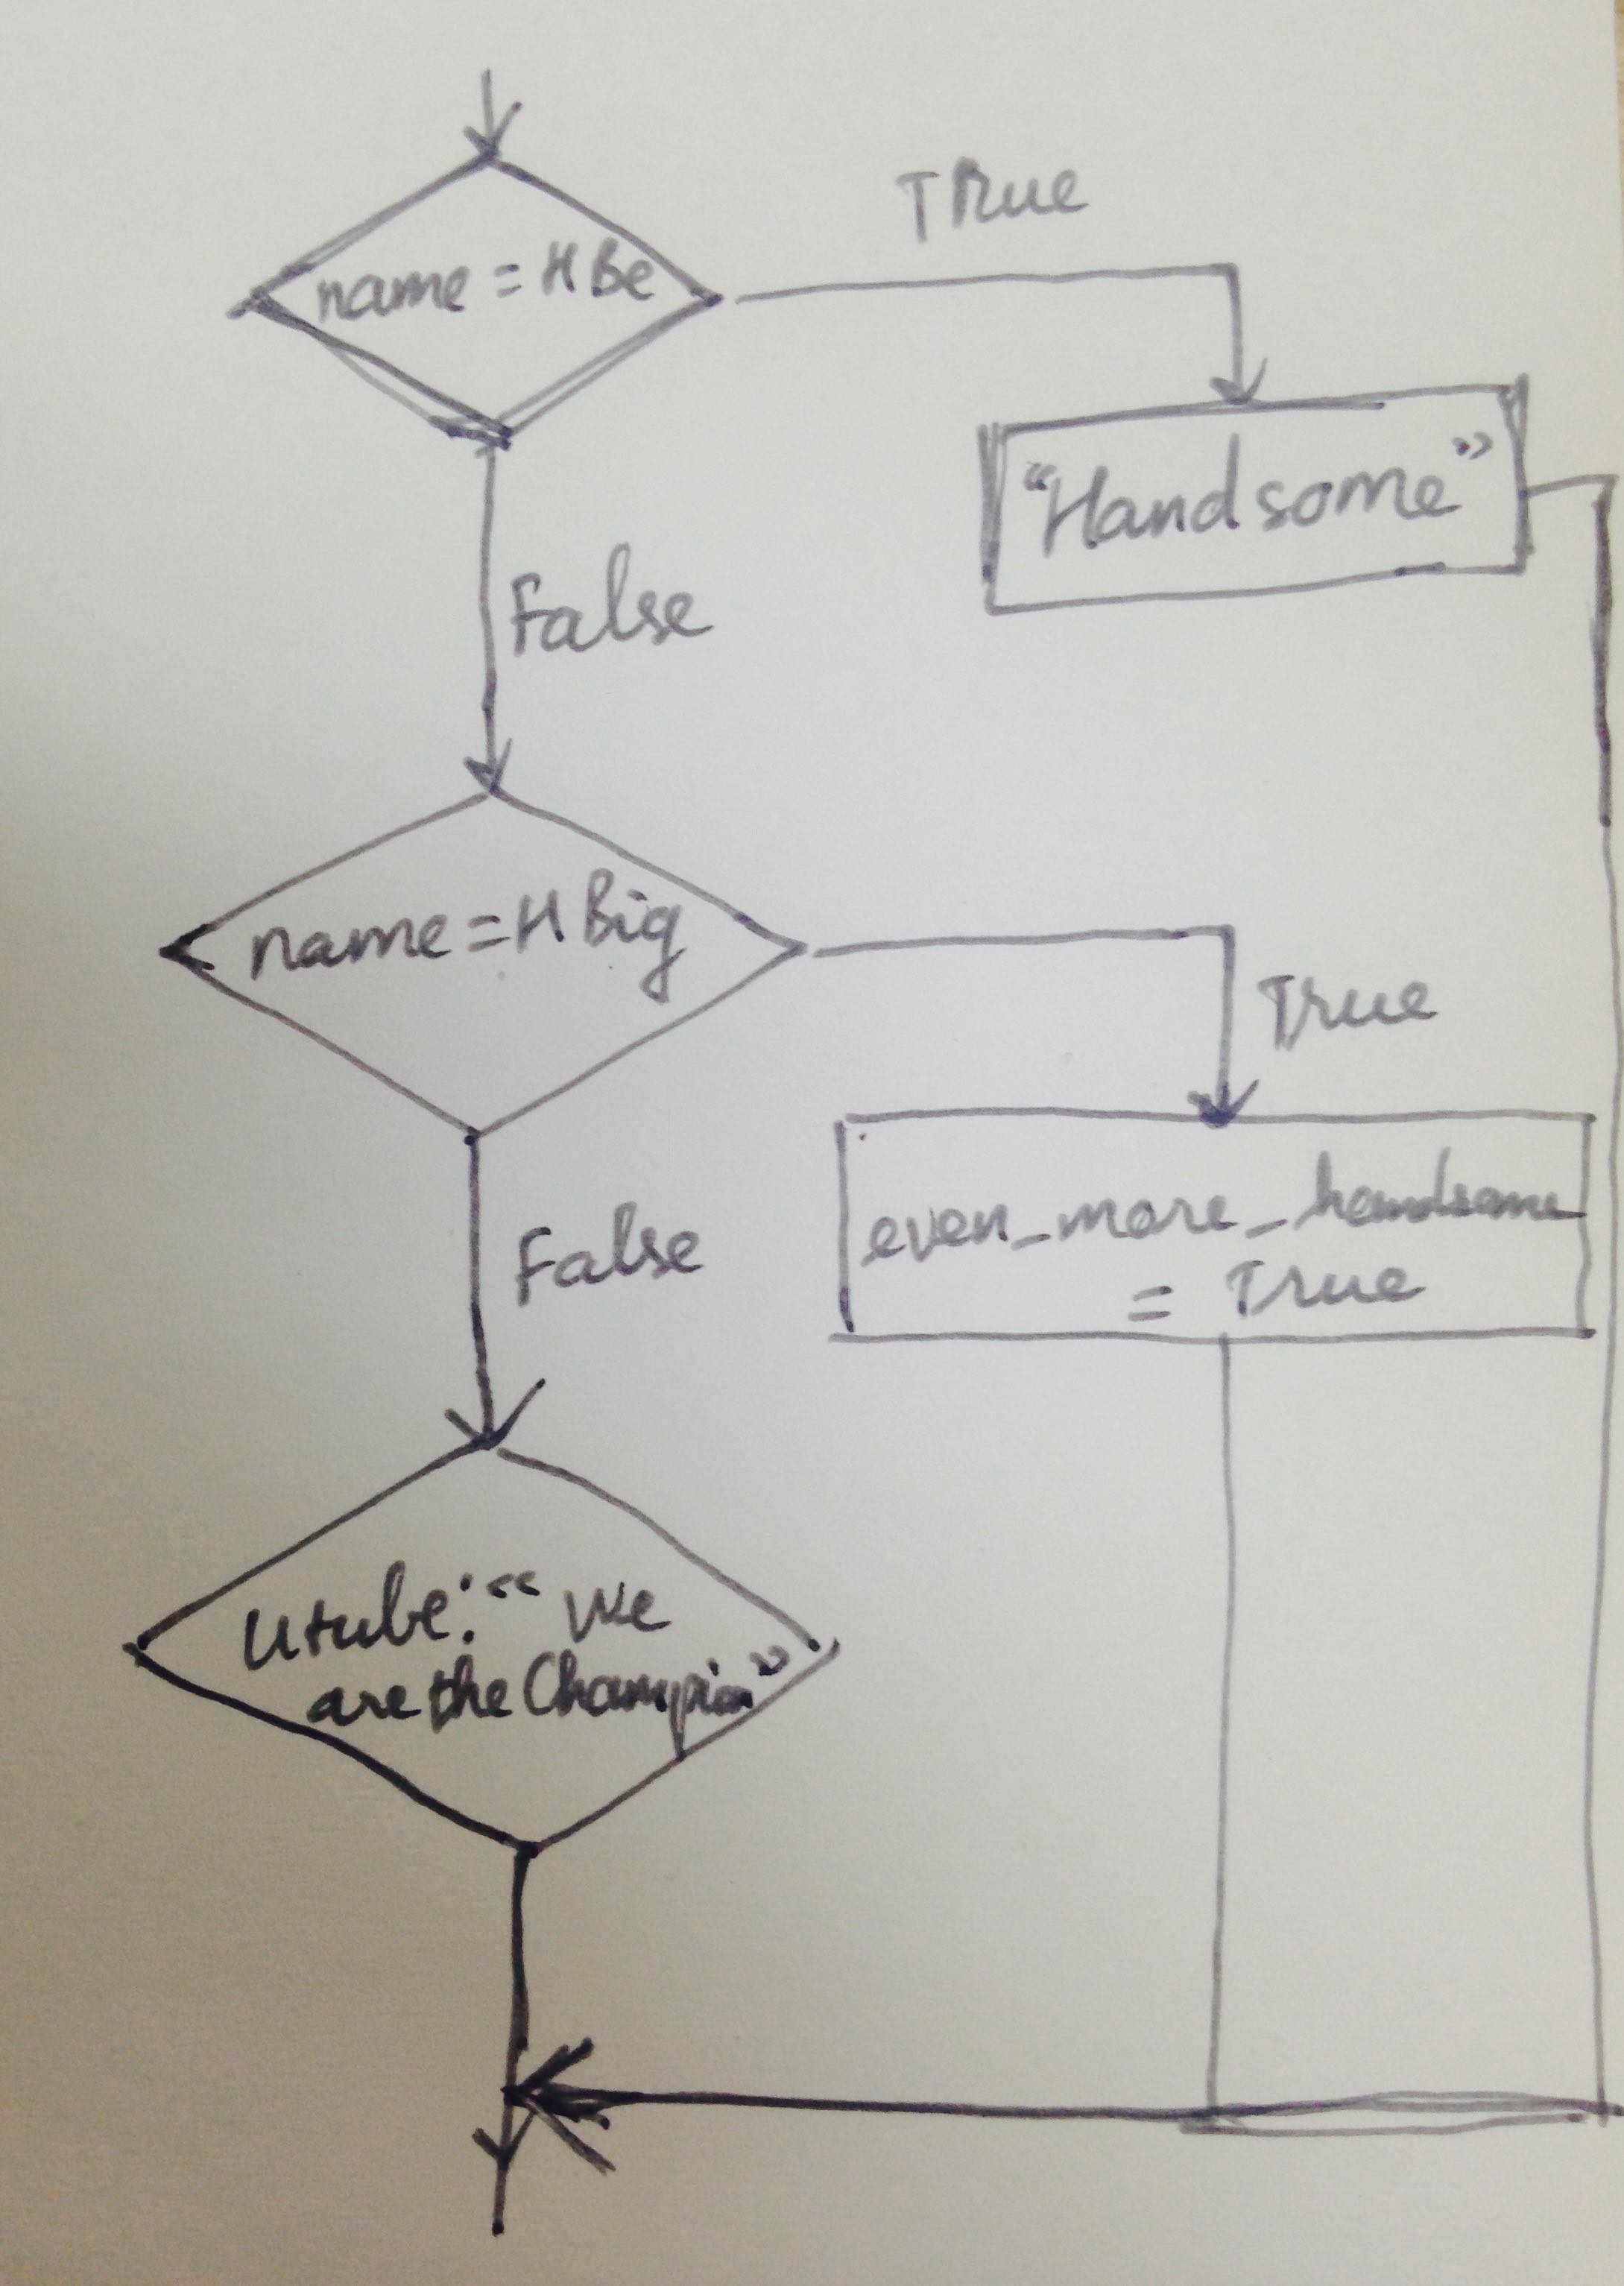 name = HBe
True
"Handsome"
False
name = HBig
True
even_more_handsome
= True
False
Utube: "We
are the Champion"